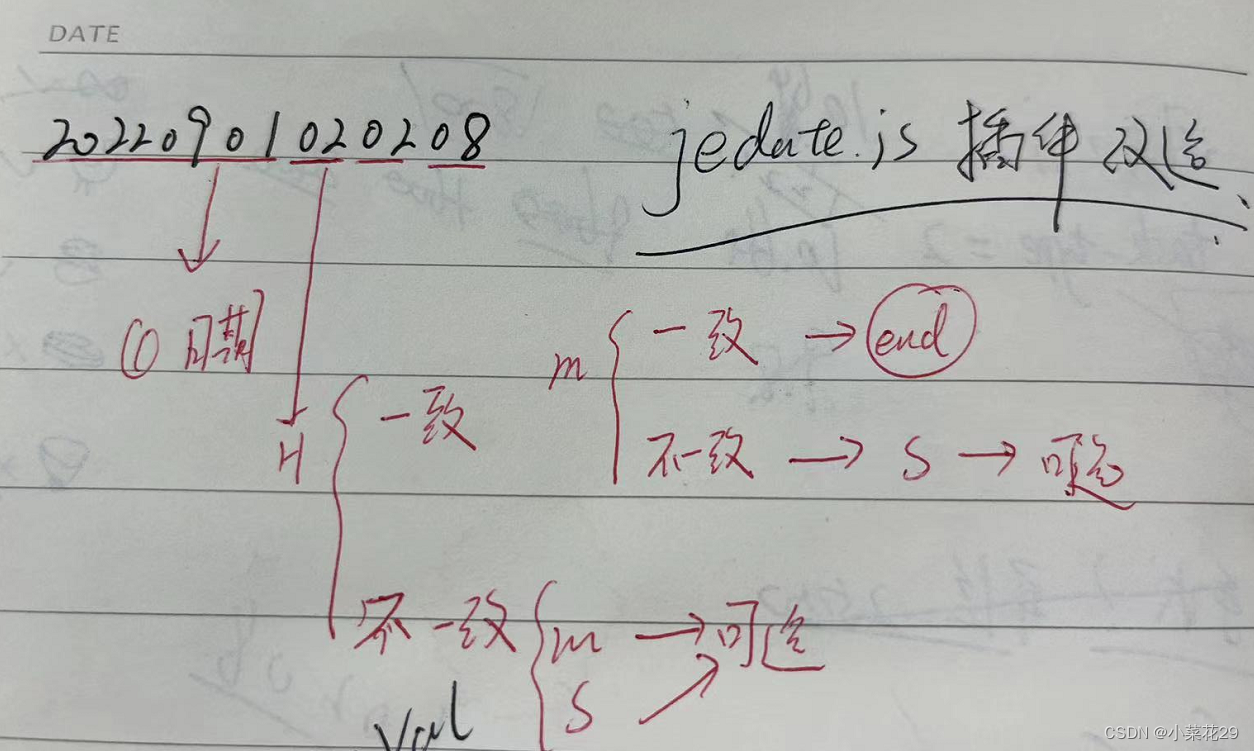 DATE
20220901020208
jedate.js 插件改造
① 日期
m
一致 → end
不一致 → S → 可选
H
一致
不一致
m → 可选
S
Val
CSDN @小菜花29